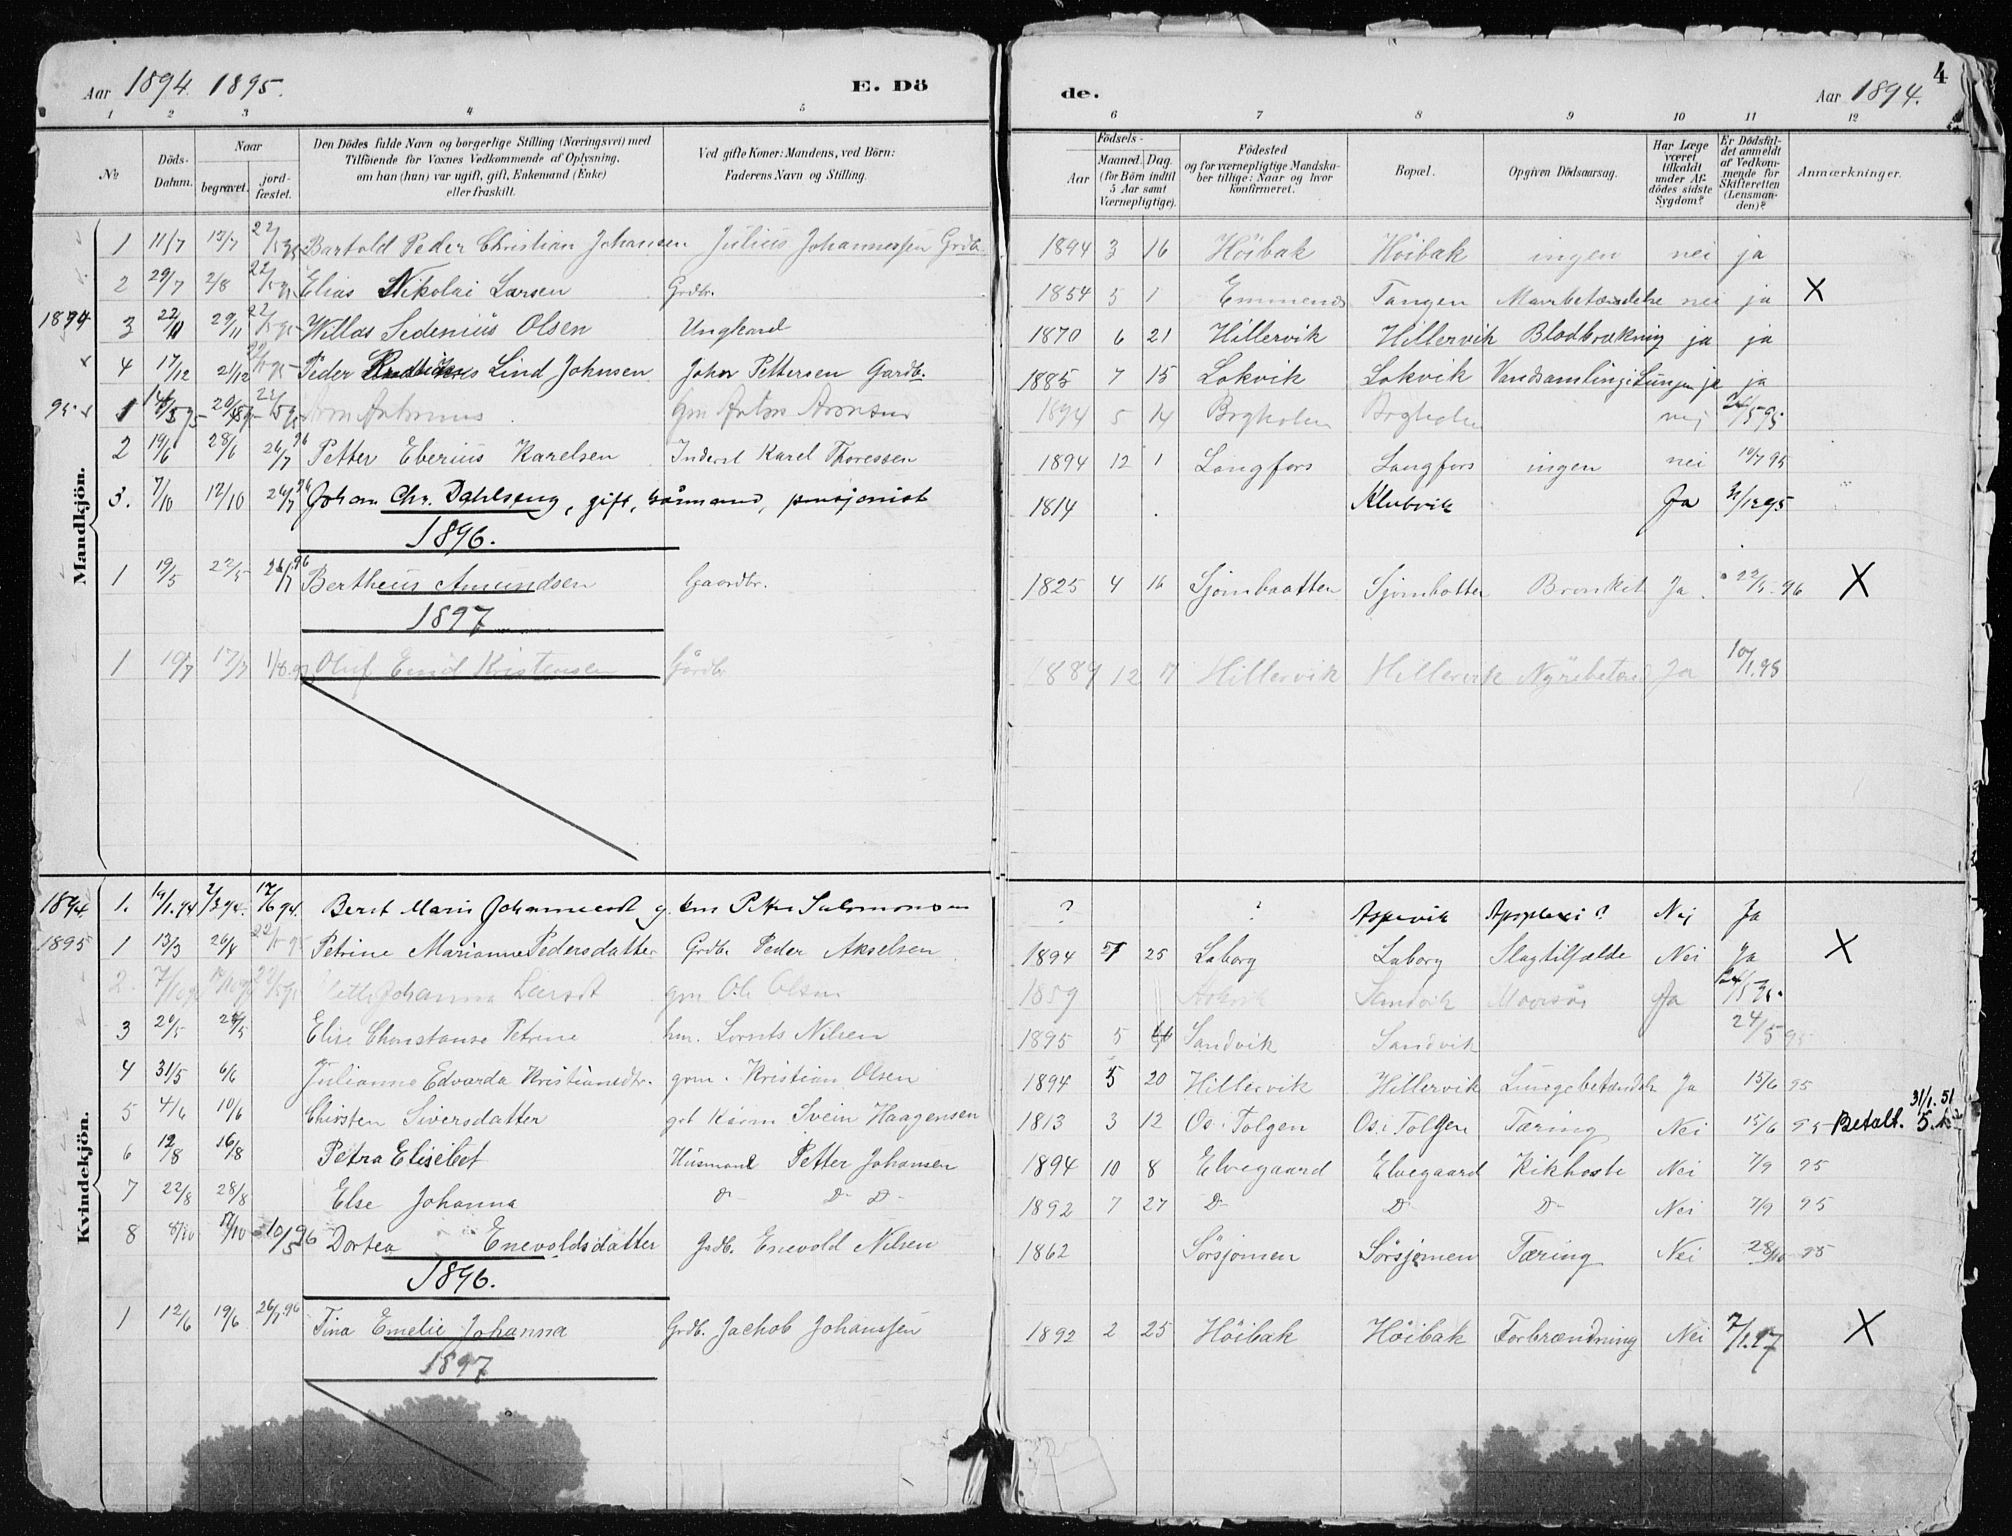 Aar 1894. 1895. E. Dö de. Aar 1894. 4
1 2 3 4 5 6 7 8 9 10 11 12
No
Döds-Datum.
Naar
begravet.
jord-fæstet.
Den Dödes fulde Navn og borgerlige Stilling (Næringsvei) med
Tilföiende for Voxnes Vedkommende af Oplysning,
om han (hun) var ugift, gift, Enkemand (Enke)
eller fraskilt.
Ved gifte Koner: Mandens, ved Börn:
Faderens Navn og Stilling.
Födsels-
Aar
Maaned. Dag.
(for Börn indtil
5 Aar samt
Værnepligtige).
Födested
og for værnepligtige Mandska-
ber tillige: Naar og hvor
konfirmeret.
Bopæl.
Opgiven Dödsaarsag.
Har Læge
været
tilkaldt
under Af-
dödes sidste
Sygdom?
Er Dödsfal-
det anmeldt
af Vedkom-
mende for
Skifteretten
(Lensman-
den)?
Anmærkninger.
Mandkjön.
1 11/7 17/7 22/5 95 Bartold Peder Christian Johansen Julius Johannessen Grdb. 1894 3 16 Höibak Höibak ingen nei ja
2 29/7 2/8 22/5 95 Elias Nikolai Larsen Grdbr. 1854 5 1 Emmenes Tangen Mavebetændelse nei ja X
1894 3 22/11 29/11 22/5 95 Willas Sedenius Olsen Ungkarl 1870 6 21 Hillervik Hillervik Blodbrækning ja ja
4 17/12 21/12 Peder Lind Johnsen John Pettersen Gardb. 1885 7 15 Lokvik Lokvik Vandsamling i Lungen ja ja
95 1 Aron Antonius Gm Anton Aronsen 1894 5 14 Bogholm Bogholm nej
2 19/6 28/6 26/7 96 Petter Eberius Karelsen Inderst Karel Thoressen 1894 12 1 Langfors Langfors ingen nei 10/7 95
3. 7/10 12/10 26/7 96 Johan Chr. Dahlseng, gift, pensjonist 1814 Klubvik Ja
1896.
1 19/5 22/5 26/7 96 Bertheus Amundsen Gaardbr. 1825 4 16 Sjömbaatten Sjömbotten Bronket Ja 22/5 96 X
1897
1 10/7 17/7 1/8 97 Oluf Emil Kristensen Gårdbr 1889 12 17 Hillervik Hillervik Nyrebetænd Ja 10/1.98
Kvindekjön.
1894 1. 19/1.94 2/3 94. 17/6 94. Berit Marie Johannesdt g. km Petter Salomonsen ? ? Aspevik Apoplexi? Nej Ja
1895 1 13/3 26/4 22/5 95 Petrine Marianne Pedersdatter Grdb. Peder Akselsen 1894 7 25 Laborg Laborg Slagtilfælde Nei Ja X
2. Johanna Larsdt gm Ole Olsen 1859 Sandvik Ja
3 20/5 Elise Chonstanse Petrine hm. Lornts Nilsen 1895 5 Sandvik Sandvik 24/5 95
4 31/5 6/6 Julianna Edvarda Kristiansdtr. grm. Kristian Olsen 1894 5 20 Hillervik Hillervik Lungebetændels Ja 15/6 95
5 4/6 10/6 Chirsten Siversdatter gdt Kårm Svein Haagensen 1813 3 12 Os i Tolgen Os i Tolgen Tæring Nei 15/6 95 Betalt. 31/1.51 5. kr
6 12/8 16/8 Petra Elisebet Husmand Petter Johansen 1894 10 8 Elvegaard Elvegaard Kikhoste Nei 7/9 95
7 22/8 28/8 Else Johanna D- D- D- 1892 7 27 D- D- D- Nei 7/9 95
8 8/10 17/10 10/5 96 Dortea Enevoldsdatter Grdb. Enevold Nilsen 1862 Sörsjomen Sörsjomen Tæring Nei 28/10 95
1896.
1 12/6 19/6 26/7.96 Tina Emelie Johanna Grdb. Jachob Johanssen 1892 2 25 Höibak Höibak Forbrændning Nei 7/1.97 X
1897